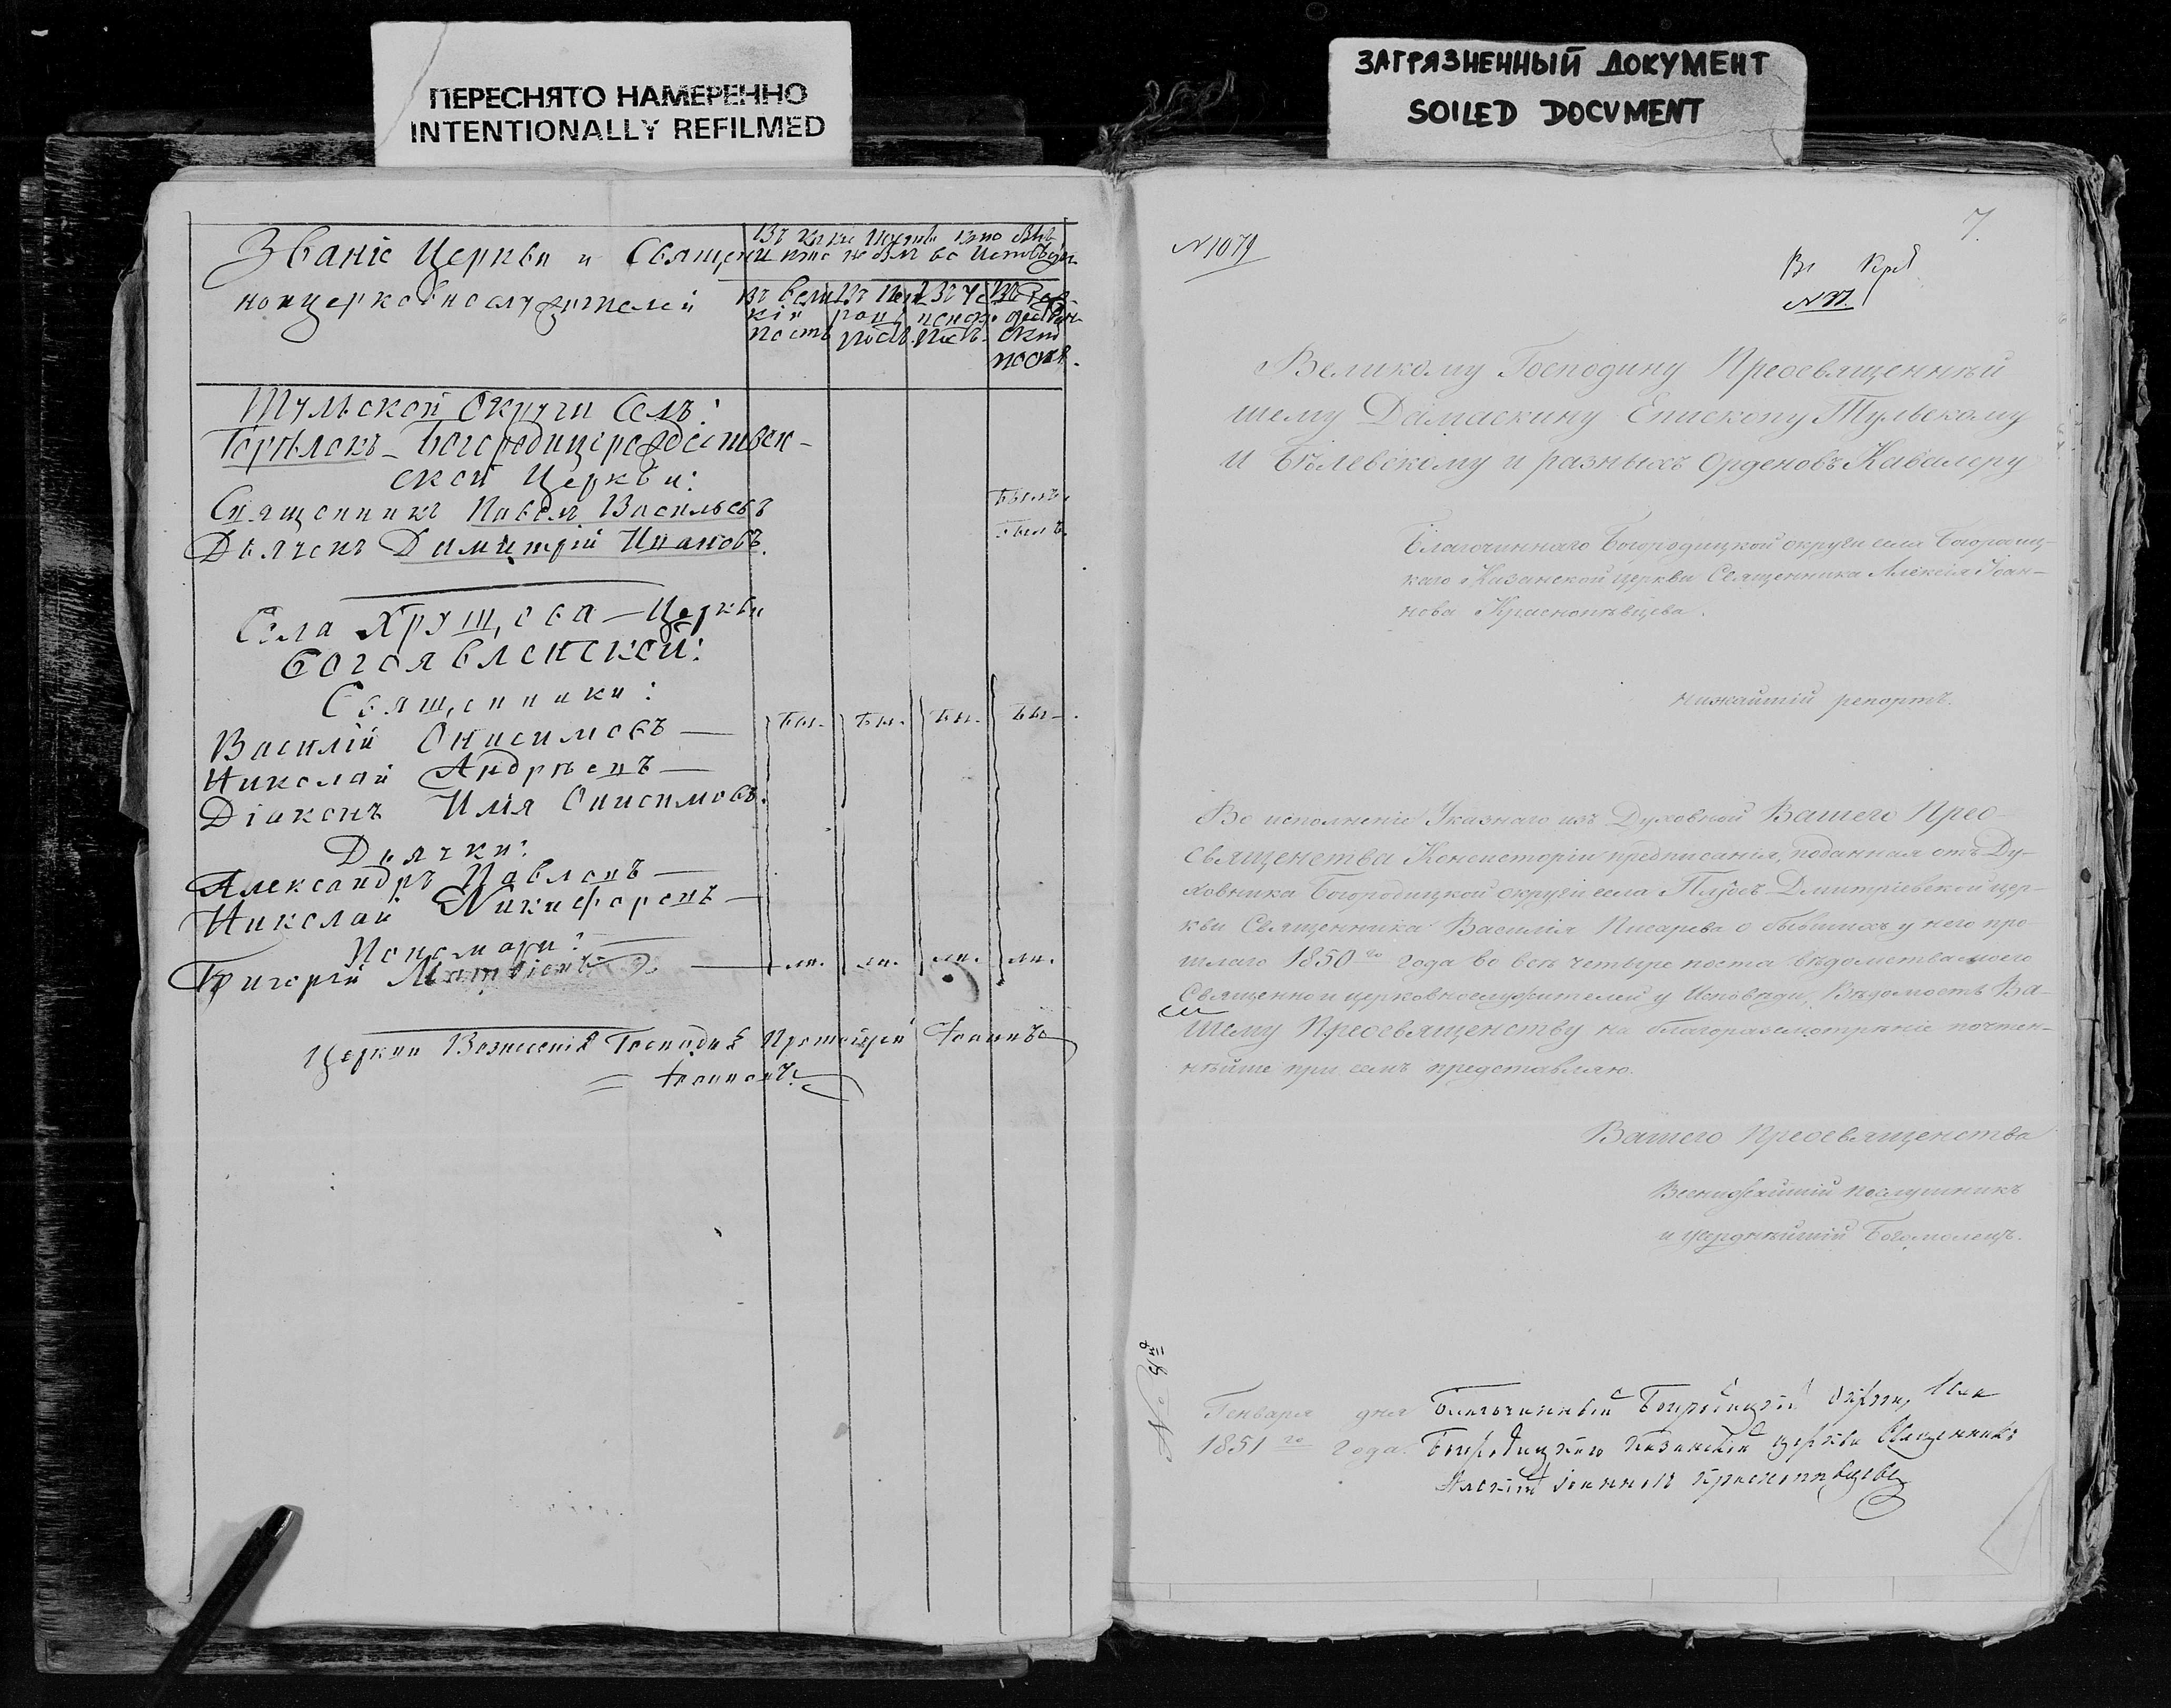 ПЕРЕСНЯТО НАМЕРЕННО
INTENTIONALLY REFILMED
Званіе Церкви и Священ
ноцерковнослужителей
Въ какіе посты кто былъ
и кто не былъ во Исповѣди
Въ Вели
кій
постъ
Въ Пет
ров
постъ
Въ Ус
пенск.
постъ
Въ Рож
дествен
скій
постъ.
Тульской Округи Селъ:
Горѣлокъ Богородицерождествен-
ской Церкви:
Священникъ Павелъ Васильевъ
былъ.
Дьячекъ Димитрій Ивановъ.
былъ.
Села Хрущова — Церкви
Богоявленской:
Священники:
Василій Онисимовъ —
бы- бы- бы- бы-
Николай Андрѣевъ —
Діаконъ Илія Онисимовъ.
Дьячки:
Александръ Павловъ —
Николай Никифоровъ —
Пономари:
Григорій Матвіевъ —
ли. ли. ли. ли.
Церкви Вознесенія Господня Протоіерей Іоаннъ
Іоанновъ.
ЗАГРЯЗНЕННЫЙ ДОКУМЕНТ
SOILED DOCUMENT
7.
N 1079
N 37.
Великому Господину Преосвященнѣй
шему Дамаскину Епископу Тульскому
и Бѣлевскому и разныхъ Орденовъ Кавалеру
Благочиннаго Богородицкой округи села Богородиц-
каго Казанской церкви Священника Алексія Іоан-
нова Краснопѣвцева.
нижайшій репортъ.
Во исполненіе Указнаго изъ Духовной Вашего Прео-
священства Консисторіи предписанія, поданная отъ Ду-
ховника Богородицкой округи села Дмитріевской цер-
кви Священника Василія Писарева о бывшихъ у него про
шлаго 1850го года во всѣ четыре поста вѣдомства моего
Священно и церковнослужителей у Исповѣди, Вѣдомость Ва-
шему Преосвященству на благоразсмотрѣніе почтен-
нѣйше при семъ представляю.
Вашего Преосвященства
Всенижайшій послушникъ
и усерднѣйшій Богомолецъ.
Генваря дня
1851го года.
Благочинный Богородицкой округи, села
Богородицкаго Казанской церкви Священникъ
Алексій Іоанновъ Краснопѣвцевъ